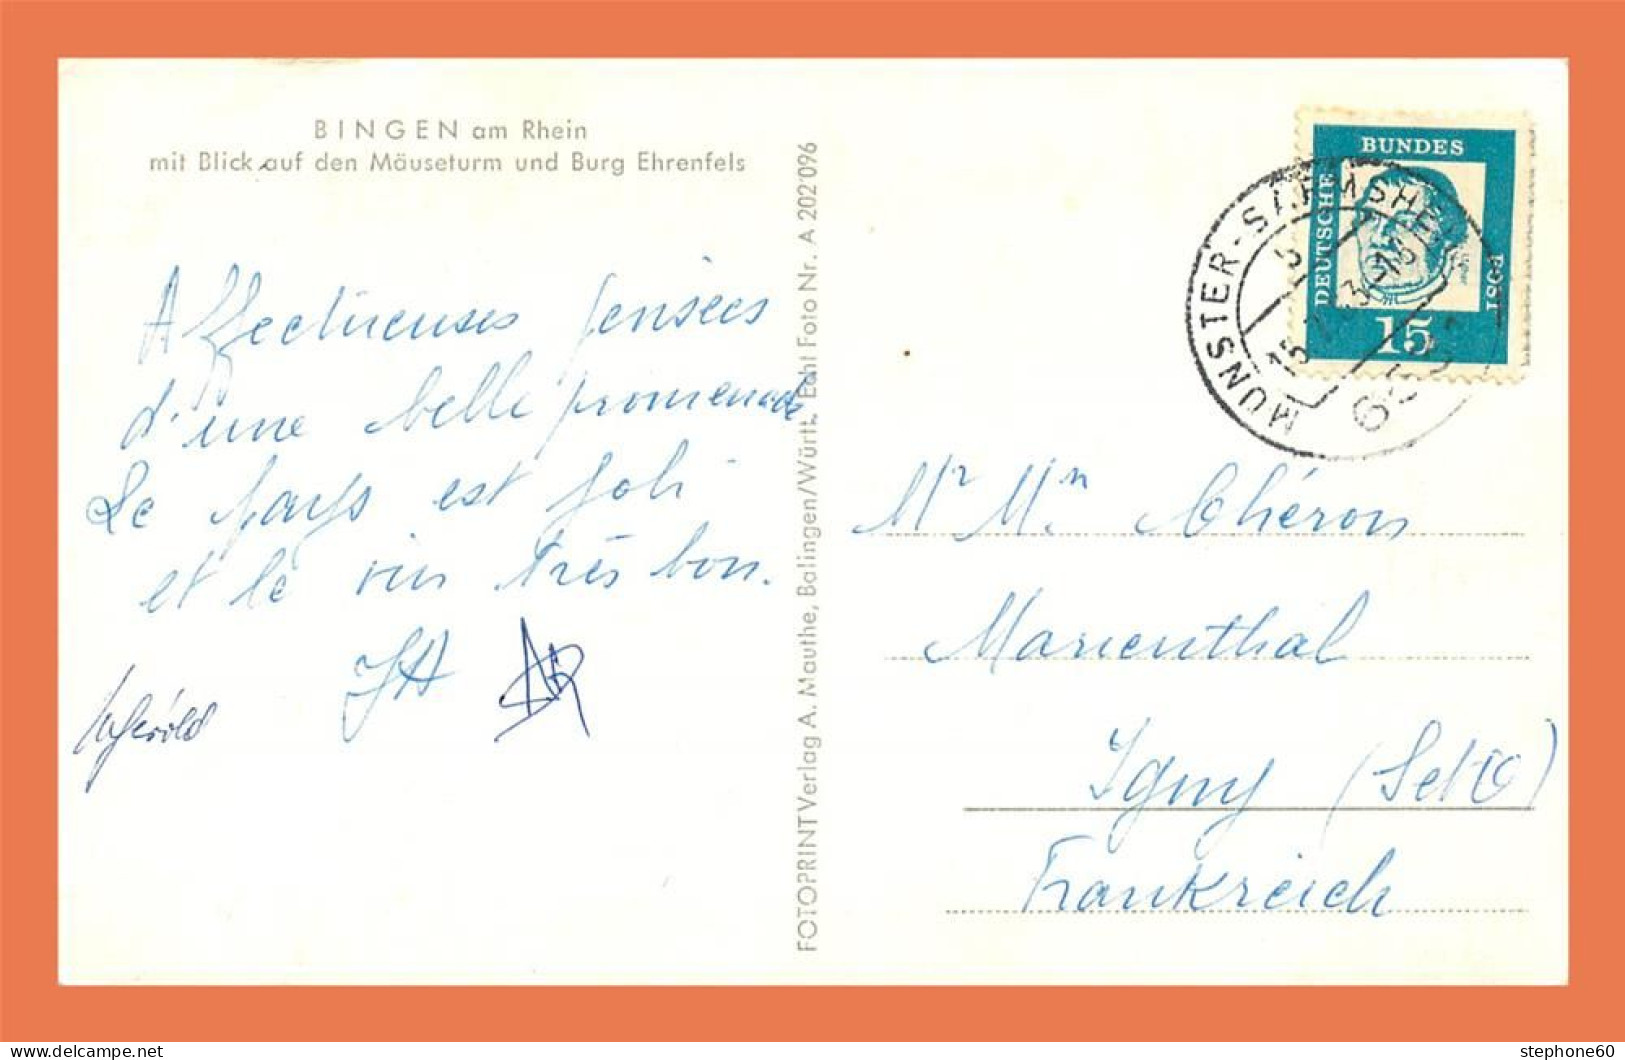 BINGEN am Rhein
mit Blick auf den Mäuseturm und Burg Ehrenfels
Affectueuses pensées
d'une belle promenade
Le pays est joli
et le vin très bon.
JA
FOTOPRINT Verlag A. Mauthe, Balingen/Württ. Echt Foto Nr. A 202'096
DEUTSCHE
BUNDES
POST
15
MÜNSTER-SARMSHEIM
Mr Mn Chéron
Marienthal
Igny (S et O)
Frankreich
stephone60